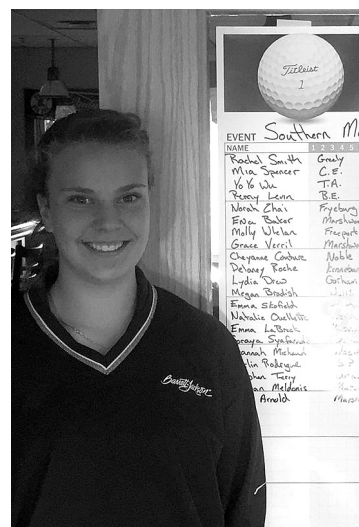 Titleist
1
EVENT Southern M
NAME 1 2 3 4 5
Rachel Smith Greely
Mia Spencer C.E.
Yo Yo Wu T.A.
Remy Lenn B.E.
Norah Zhai Fryeburg
Molly Whelan Freeport
Grace Verril Marshwo
Cheyanne Couture Noble
Delaney Roche Kennebun
Lydia Drew Gorham
Megan Bradish
Emma Skofield
Natalie Ouellette
Emma LaBreck
annah Michaud
lin Rodrigue
Terry
an
Arnold Marsh
Barrett-Jackson